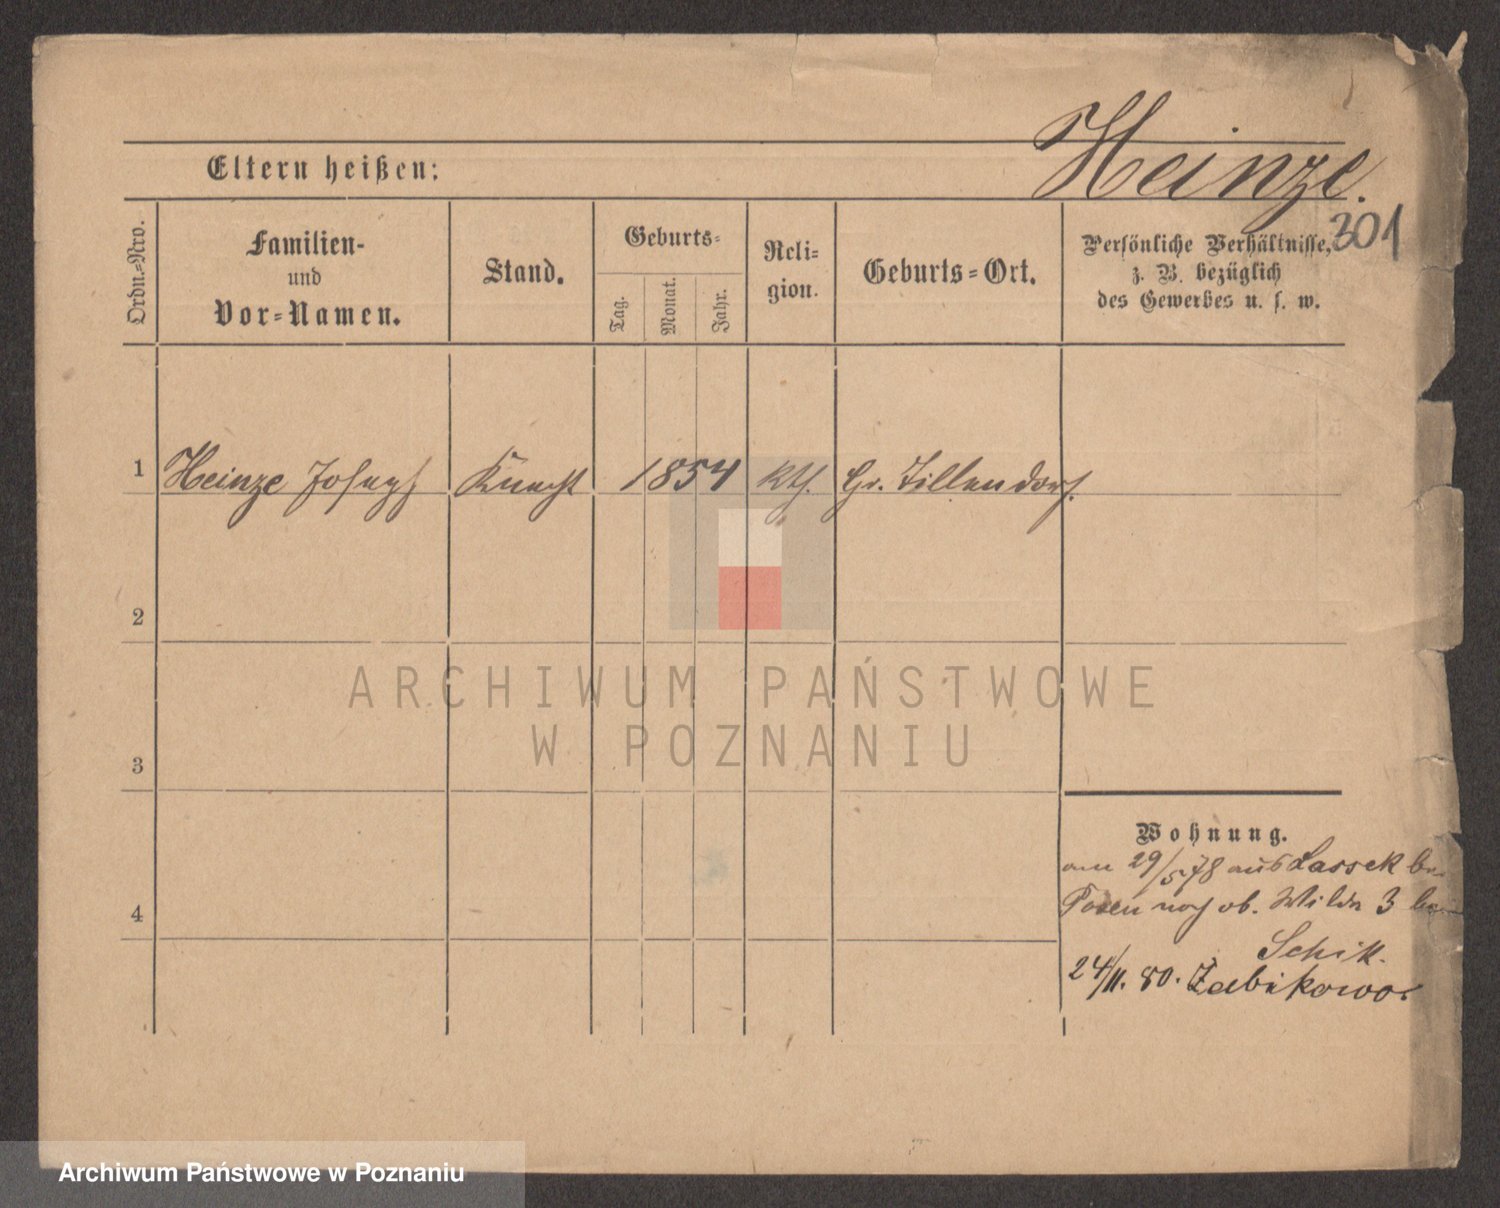 Heinze.
Eltern heißen:
301
Ordn.-Nro.
Familien-
und
Vor-Namen.
Stand.
Geburts-
Tag.
Monat.
Jahr.
Reli-
gion.
Geburts-Ort.
Persönliche Verhältnisse,
z. B. bezüglich
des Gewerbes u. s. w.
1 Heinze Joseph Knecht 1854 kth. Gr. Tillendorf.
2
3
4
ARCHIWUM PAŃSTWOWE
W POZNANIU
Wohnung.
am 29/5 78 aus Lassek bei
Posen nach ob. Wilda 3 bei
Schik.
24/11. 80. Zabikowo.
Archiwum Państwowe w Poznaniu